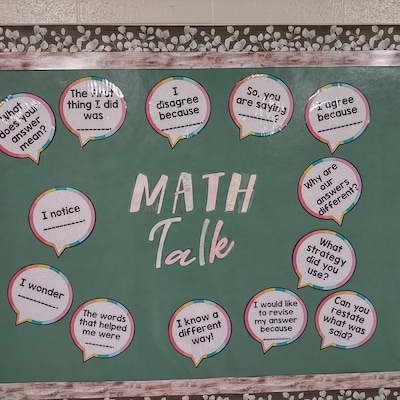 What
does your
answer
mean?
The first
thing I did
was
__________
I
disagree
because
__________
So, you
are saying
__________?
I agree
because
__________
MATH
Talk
Why are
our
answers
different?
I notice
__________
What
strategy
did you
use?
I wonder
__________
The words
that helped
me were
__________
I know a
different
way!
I would like
to revise
my answer
because
__________
Can you
restate
what was
said?